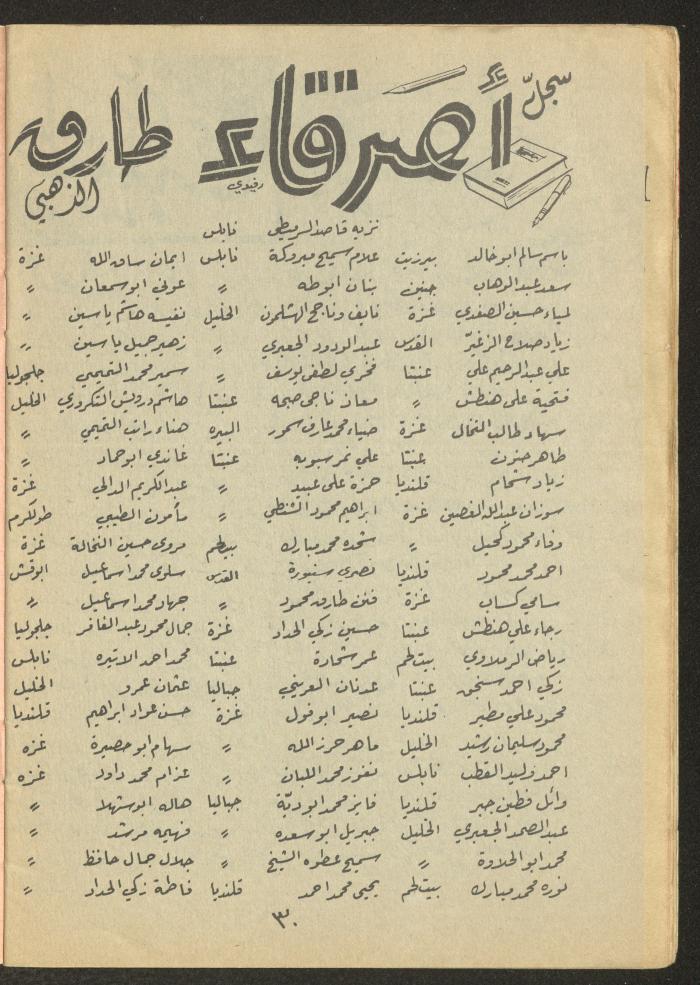 سجلّ
أصدقاء طارق
رفيدي
الذهبي
نزيه قاصد نابلس
باسم سالم ابو خالد بيرزيت علام سميح مبروكة نابلس ايمان ساق الله غزة
سعد عبد الوهاب جنين بنان ابو طه " عوني ابو سمعان "
لمياء حسين الصفدي غزة نايف وناجح الهشلمون الخليل نفيسه هاشم ياسين "
زياد صلاح الزغيّر القدس عبد الودود الجعبري " زهير جميل ياسين "
علي عبد الرحيم علي عنبتا فخري لطفي يوسف " سمير محمد التميمي جلجوليا
فتحية علي هنطش " معاذ ناجي صبحه عنبتا هاشم درويش التكروري الخليل
سهاد طالب النخال غزة ضياء محمد عارف سمور البيره هناء راتب التميمي "
طاهر حنون عنبتا علي نمر عنبتا غاندي ابو حماد "
زياد شحام قلنديا حمزة علي عبيد " عبد الكريم الدالي غزة
سوزان عبد الله الغصين غزة ابراهيم محمود الشنطي " مأمون الطيبي طولكرم
وفاء محمود كحيل " شحده محمد مبارك بيت لحم مروى حسين النخالة غزة
احمد محمد محمود قلنديا نصري سنيورة القدس سلوى محمد اسماعيل ابو قش
سامي كساب غزة فتن طارق محمود " جهاد محمد اسماعيل "
رجاء علي هنطش عنبتا حسين زكي الحداد غزة جمال محمود عبد الغافر جلجوليا
رياض الرملاوي بيت لحم عمر شحادة عنبتا محمد احمد الاتيره نابلس
زكي احمد سنجق عنبتا عدنان العريني جباليا عثمان عمرو الخليل
محمود علي مطير قلنديا نصير ابو فول غزة حسن عواد ابراهيم قلنديا
محمود سليمان رشيد الخليل ماهر حرز الله " سهام ابو حصيرة غزه
احمد وليد القطب نابلس نفوز محمد اللبان " عزام محمد داود غزه
وائل فطين جبر قلنديا فايز محمد ابو ديّة جباليا هاله ابو شهلا "
عبد الصمد الجعبري الخليل جبريل ابو سعده " فهيمه مرشد "
محمد ابو الحلاوة " سميح عطوه الشيخ " جلال جمال حافظ "
نوره محمد مبارك بيت لحم يحيى محمد احمد قلنديا فاطمة زكي الحداد "
٣٠